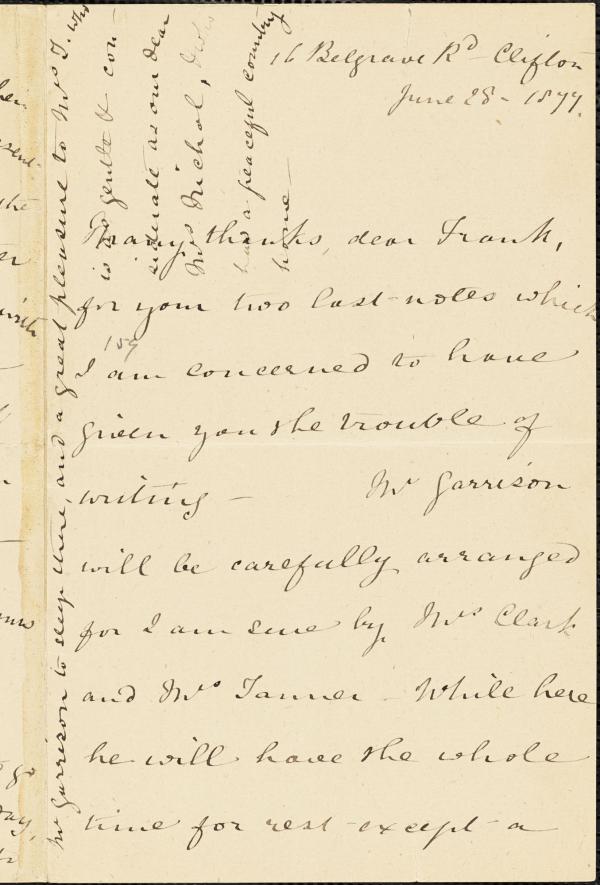 16 Belgrave Rd Clifton
June 28 - 1877.
Many thanks, dear Frank,
for your two last notes which
I am concerned to have
given you the trouble of
writing - Mr Garrison
will be carefully arranged
for I am sure by Mrs Clark
and Mrs Tanner - While here
he will have the whole
time for rest except a
159
Mr Garrison to sleep there, and a great pleasure to Mrs T. who
is as gentle & con
siderate as our dear
Mrs Nichol,
has a peaceful country
home -